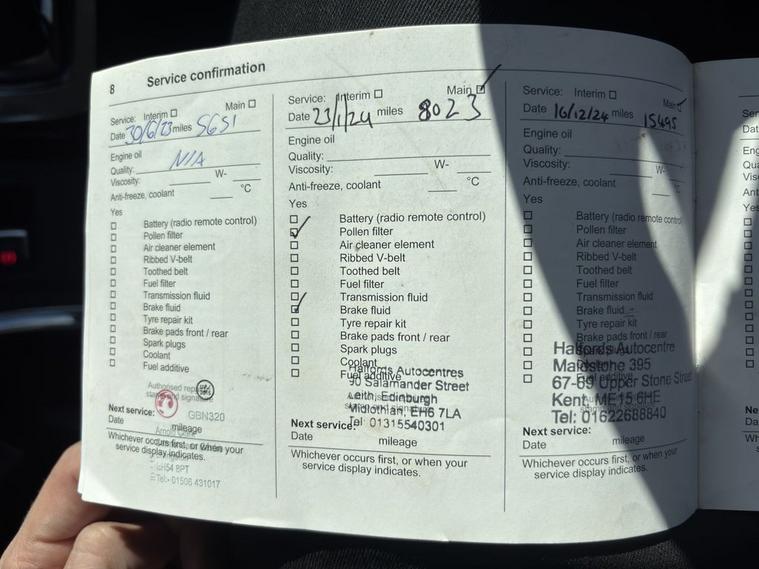 8 Service confirmation
Service: Interim Main
Date 30/6/23 miles 5651
Engine oil
Quality: N/A
Viscosity: W-
Anti-freeze, coolant °C
Yes
Battery (radio remote control)
Pollen filter
Air cleaner element
Ribbed V-belt
Toothed belt
Fuel filter
Transmission fluid
Brake fluid
Tyre repair kit
Brake pads front / rear
Spark plugs
Coolant
Fuel additive
Authorised
GBN320
Next service:
Date mileage
Whichever occurs first, or when your
service display indicates.
EH54 8PT
Tel:- 01506 431017
Service: Interim Main ✓
Date 23/1/24 miles 8023
Engine oil
Quality:
Viscosity: W-
Anti-freeze, coolant °C
Yes
Battery (radio remote control)
✓ Pollen filter
Air cleaner element
Ribbed V-belt
Toothed belt
Fuel filter
Transmission fluid
✓ Brake fluid
Tyre repair kit
Brake pads front / rear
Spark plugs
Coolant
Fuel additive
Halfords Autocentres
90 Salamander Street
Leith, Edinburgh
Midlothian, EH6 7LA
Tel: 01315540301
Next service:
Date mileage
Whichever occurs first, or when your
service display indicates.
Service: Interim Main ✓
Date 16/12/24 miles 15495
Engine oil
Quality:
Viscosity: W-
Anti-freeze, coolant °C
Yes
Battery (radio remote control)
Pollen filter
Air cleaner element
Ribbed V-belt
Toothed belt
Fuel filter
Transmission fluid
Brake fluid
Tyre repair kit
Brake pads front / rear
Halfords Autocentre
Maidstone 395
67-69 Upper Stone Street
Kent, ME15 6HE
Tel: 01622688840
Next service:
Date mileage
Whichever occurs first, or when your
service display indicates.